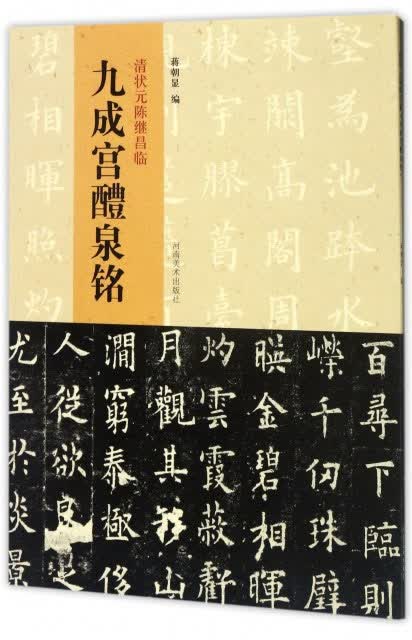 清状元陈继昌临
九成宫醴泉铭
蒋朝显 编
河南美术出版社
壑為池跨水
竦闕高閣周
棟宇膠葛臺
碧相暉照灼
百尋下臨則
嶸千仞珠璧
暎金碧相暉
灼雲霞蔽虧
月觀其移山
澗窮泰極侈
人從欲良足
尤至於炎景